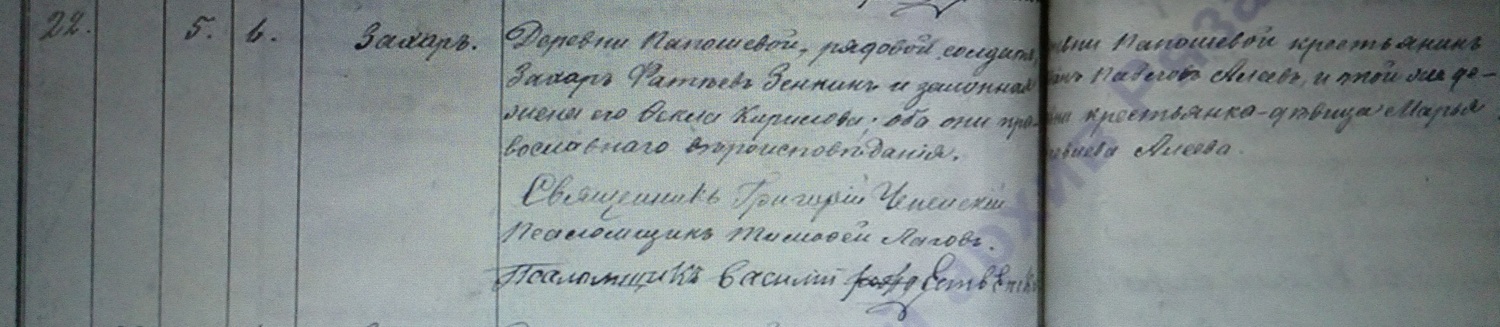 22. 5. 6. Захаръ. Деревни Напошевой, рядовой солдатъ
Захаръ Фатѣевъ Зенкинъ и законная
жена его Ѳекла Кирилова; оба они пра-
вославнаго вѣроисповѣданія.
Священникъ Григорій
Псаломщикъ Тимоѳей Лаговъ.
Псаломщикъ Василій Рождественскій
вни Напошевой крестьянинъ
Павловъ Алеевъ, и той же де-
вни крестьянка-дѣвица Марья
Алеева.